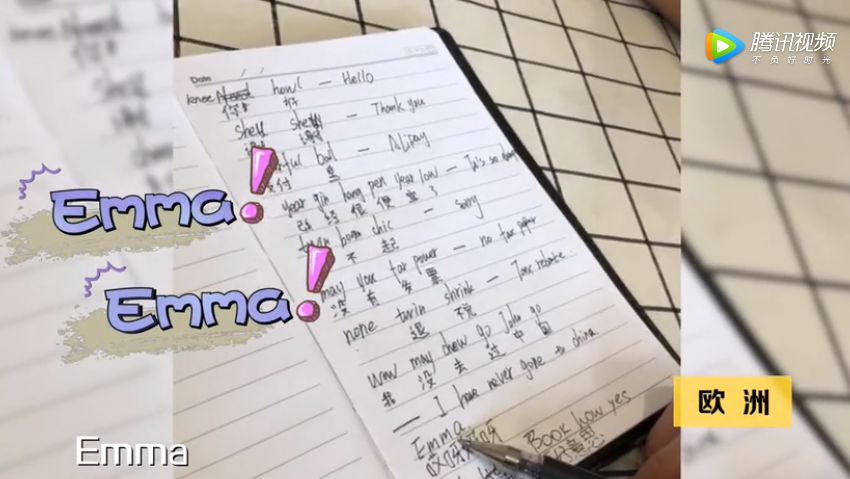 腾讯视频
不负好时光
Date / /
knee how( — Hello
你 好
shell shell — Thank you
谢 谢
ful bal — Alipay
付 宝
year gin hang pen year low — It's so
已 经 很 便 宜 了
boom chic — sorry
不 起
may you far power — no tax paper
没 有 发 票
none twin shrink — Tax rebate
退 税
wow may chew go John go
我 没 去 过 中 国
— I have never gone to china
Emma
Book how yes
Emma!
Emma!
欧洲
Emma